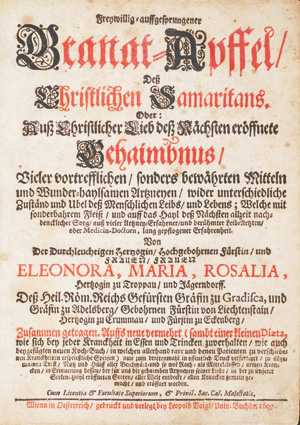 Freywillig-auffgesprungener
Granat-Apffel/
Deß
Christlichen Samaritans.
Oder:
Auß Christlicher Lieb deß Nächsten eröffnete
Gehaimbnus/
Vieler vortrefflichen/ sonders bewährten Mitteln
und Wunder-haylsamen Artzneyen/ wider unterschiedliche
Zuständ und Ubel deß Menschlichen Leibs/ und Lebens; Welche mit
sonderbahrem Fleiß/ und auß das Hayl deß Nächsten allzeit nach-
dencklicher Sorg/ auß vieler Artzney-Erfahrner/und berühmter Leib-Aertzten/
oder Medicin-Doctorn, lang gepflogener Erfahrenheit.
Von
Der Durchleuchtigen Hertzogin/ Hochgebohrnen Fürstin/ und
FRAUEN/ FRAUEN
ELEONORA, MARIA, ROSALIA,
Hertzogin zu Troppau/ und Jägerndorff.
Deß Heil. Röm. Reichs Gefürsten Gräfin zu Gradisca, und
Gräfin zu Adelsberg/ Gebohrnen Fürstin von Liechtenstein/
Hertzogin zu Crummau/ und Fürstin zu Eckenberg/
Zusammen getragen. Auffs neue vermehrt (sambt einer kleinen Diæta,
wie sich bey jeder Kranckheit in Essen und Trincken zuverhalten/ wie auch
Cum Licentia & Facultate Superiorum, & Privil. Sac. Cæs. Majestatis.
Wienn in Oesterreich/ gedruckt und verlegt bey Leopold Voigt/ Univ. Buchdr. 1697.